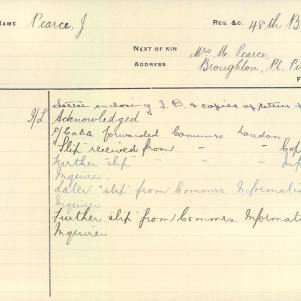 NAME Pearce, J REG. &C. 48th B
NEXT OF KIN Mrs M. Pearce,
ADDRESS Broughton, Pt. Pi
F
Letter enclosing I. B. & copies of letters
H/L Acknowledged
P/Card forwarded Comrers London
"Slip" received from " " Cop
Further "slip" " " " Inf
Inquirer
Later "slip" from Comrers Informati
Inquirer
Further slip from Comrers Informa
Inquirer